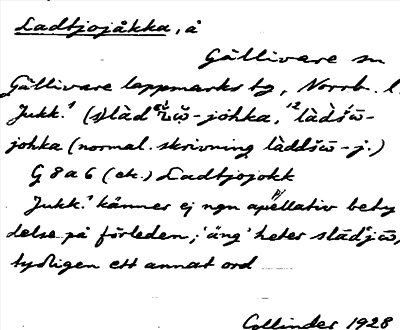 Ladtjojåkka, å
Gällivare sn
Gällivare lappmarks tg, Norrb. l.
Jukk.¹ (s)låd -johka, ¹² làdš́ω̄-
johka (normal. skrivning làddšω̄-j.)
G 8 a 6 (ek.) Ladtjojokk
Jukk.¹ känner ej ngn apellativ bety
delse på förleden; 'äng' heter
tydligen ett annat ord
Collinder 1928